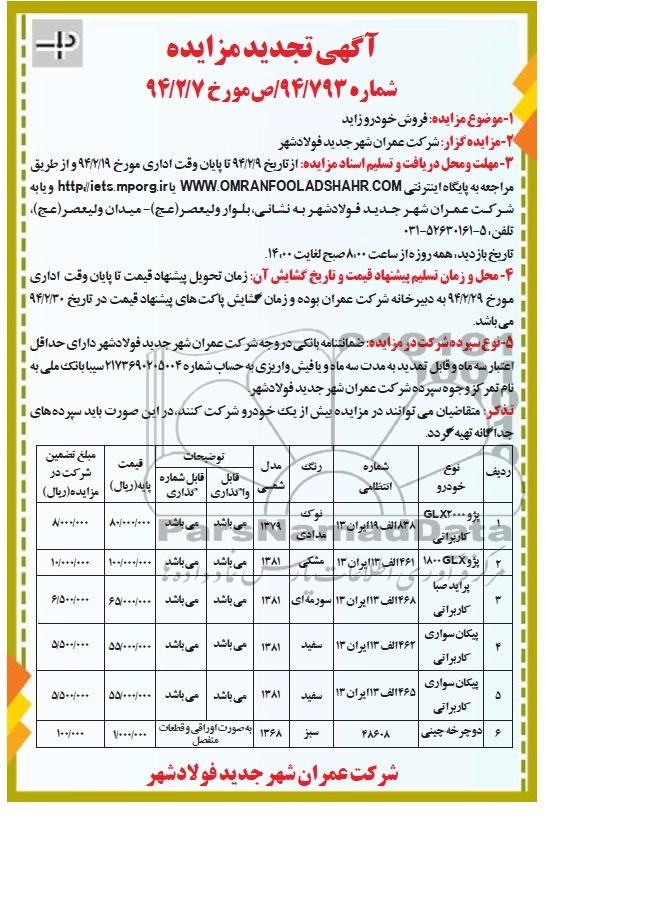 آگهی تجدید مزایده
شماره ۹۴/۷۹۳/ص مورخ ۹۴/۲/۷
۱-موضوع مزایده: فروش خودرو زاید
۲-مزایده گزار: شرکت عمران شهر جدید فولادشهر
۳-مهلت ومحل دریافت و تسلیم اسناد مزایده: از تاریخ ۹۴/۲/۹ تا پایان وقت اداری مورخ ۹۴/۲/۱۹ و از طریق
مراجعه به پایگاه اینترنتی WWW.OMRANFOOLADSHAHR.COM یا http://iets.mporg.ir و یا به
شرکت عمران شهر جدید فولادشهر به نشانی، بلوار ولیعصر(عج)- میدان ولیعصر(عج)،
تلفن: ۵-۵۲۶۳۰۱۶۱-۰۳۱
تاریخ بازدید، همه روزه از ساعت ۸،۰۰ صبح لغایت ۱۴،۰۰.
۴- محل و زمان تسلیم پیشنهاد قیمت و تاریخ گشایش آن: زمان تحویل پیشنهاد قیمت تا پایان وقت اداری
مورخ ۹۴/۲/۲۹ به دبیرخانه شرکت عمران بوده و زمان گشایش پاکت های پیشنهاد قیمت در تاریخ ۹۴/۲/۳۰
می باشد.
۵-نوع سپرده شرکت در مزایده: ضمانتنامه بانکی در وجه شرکت عمران شهر جدید فولادشهر دارای حداقل
اعتبار سه ماه و قابل تمدید به مدت سه ماه و یا فیش واریزی به حساب شماره ۲۱۷۳۶۹۰۲۰۵۰۰۴ سیبا بانک ملی به
نام تمرکز وجوه سپرده شرکت عمران شهر جدید فولادشهر.
تذکر: متقاضیان می توانند در مزایده بیش از یک خودرو شرکت کنند، در این صورت باید سپرده های
جداگانه تهیه گردد.
ردیف نوع خودرو شماره انتظامی رنگ مدل شمسی توضیحات قابل واگذاری قابل شماره گذاری قیمت پایه(ریال) مبلغ تضمین شرکت در مزایده(ریال)
۱ پژو GLX۲۰۰۰ کاربراتی ۸۳۸الف۱۹ ایران ۱۳ نوک مدادی ۱۳۷۹ می باشد می باشد ۸۰/۰۰۰/۰۰۰ ۸/۰۰۰/۰۰۰
۲ پژو ۱۸۰۰GLX ۴۶۱الف۱۳ ایران ۱۳ مشکی ۱۳۸۱ می باشد می باشد ۱۰۰/۰۰۰/۰۰۰ ۱۰/۰۰۰/۰۰۰
۳ پراید صبا کاربراتی ۴۶۸الف۱۳ ایران ۱۳ سورمه ای ۱۳۸۱ می باشد می باشد ۶۵/۰۰۰/۰۰۰ ۶/۵۰۰/۰۰۰
۴ پیکان سواری کاربراتی ۴۶۲الف۱۳ ایران ۱۳ سفید ۱۳۸۱ می باشد می باشد ۵۵/۰۰۰/۰۰۰ ۵/۵۰۰/۰۰۰
۵ پیکان سواری کاربراتی ۴۶۵الف۱۳ ایران ۱۳ سفید ۱۳۸۱ می باشد می باشد ۵۵/۰۰۰/۰۰۰ ۵/۵۰۰/۰۰۰
۶ دوچرخه چینی ۴۸۶۰۸ سبز ۱۳۶۸ به صورت اوراقی و قطعات منفصل ۱/۰۰۰/۰۰۰ ۱۰۰/۰۰۰
ParsNamadData
شرکت عمران شهر جدید فولادشهر